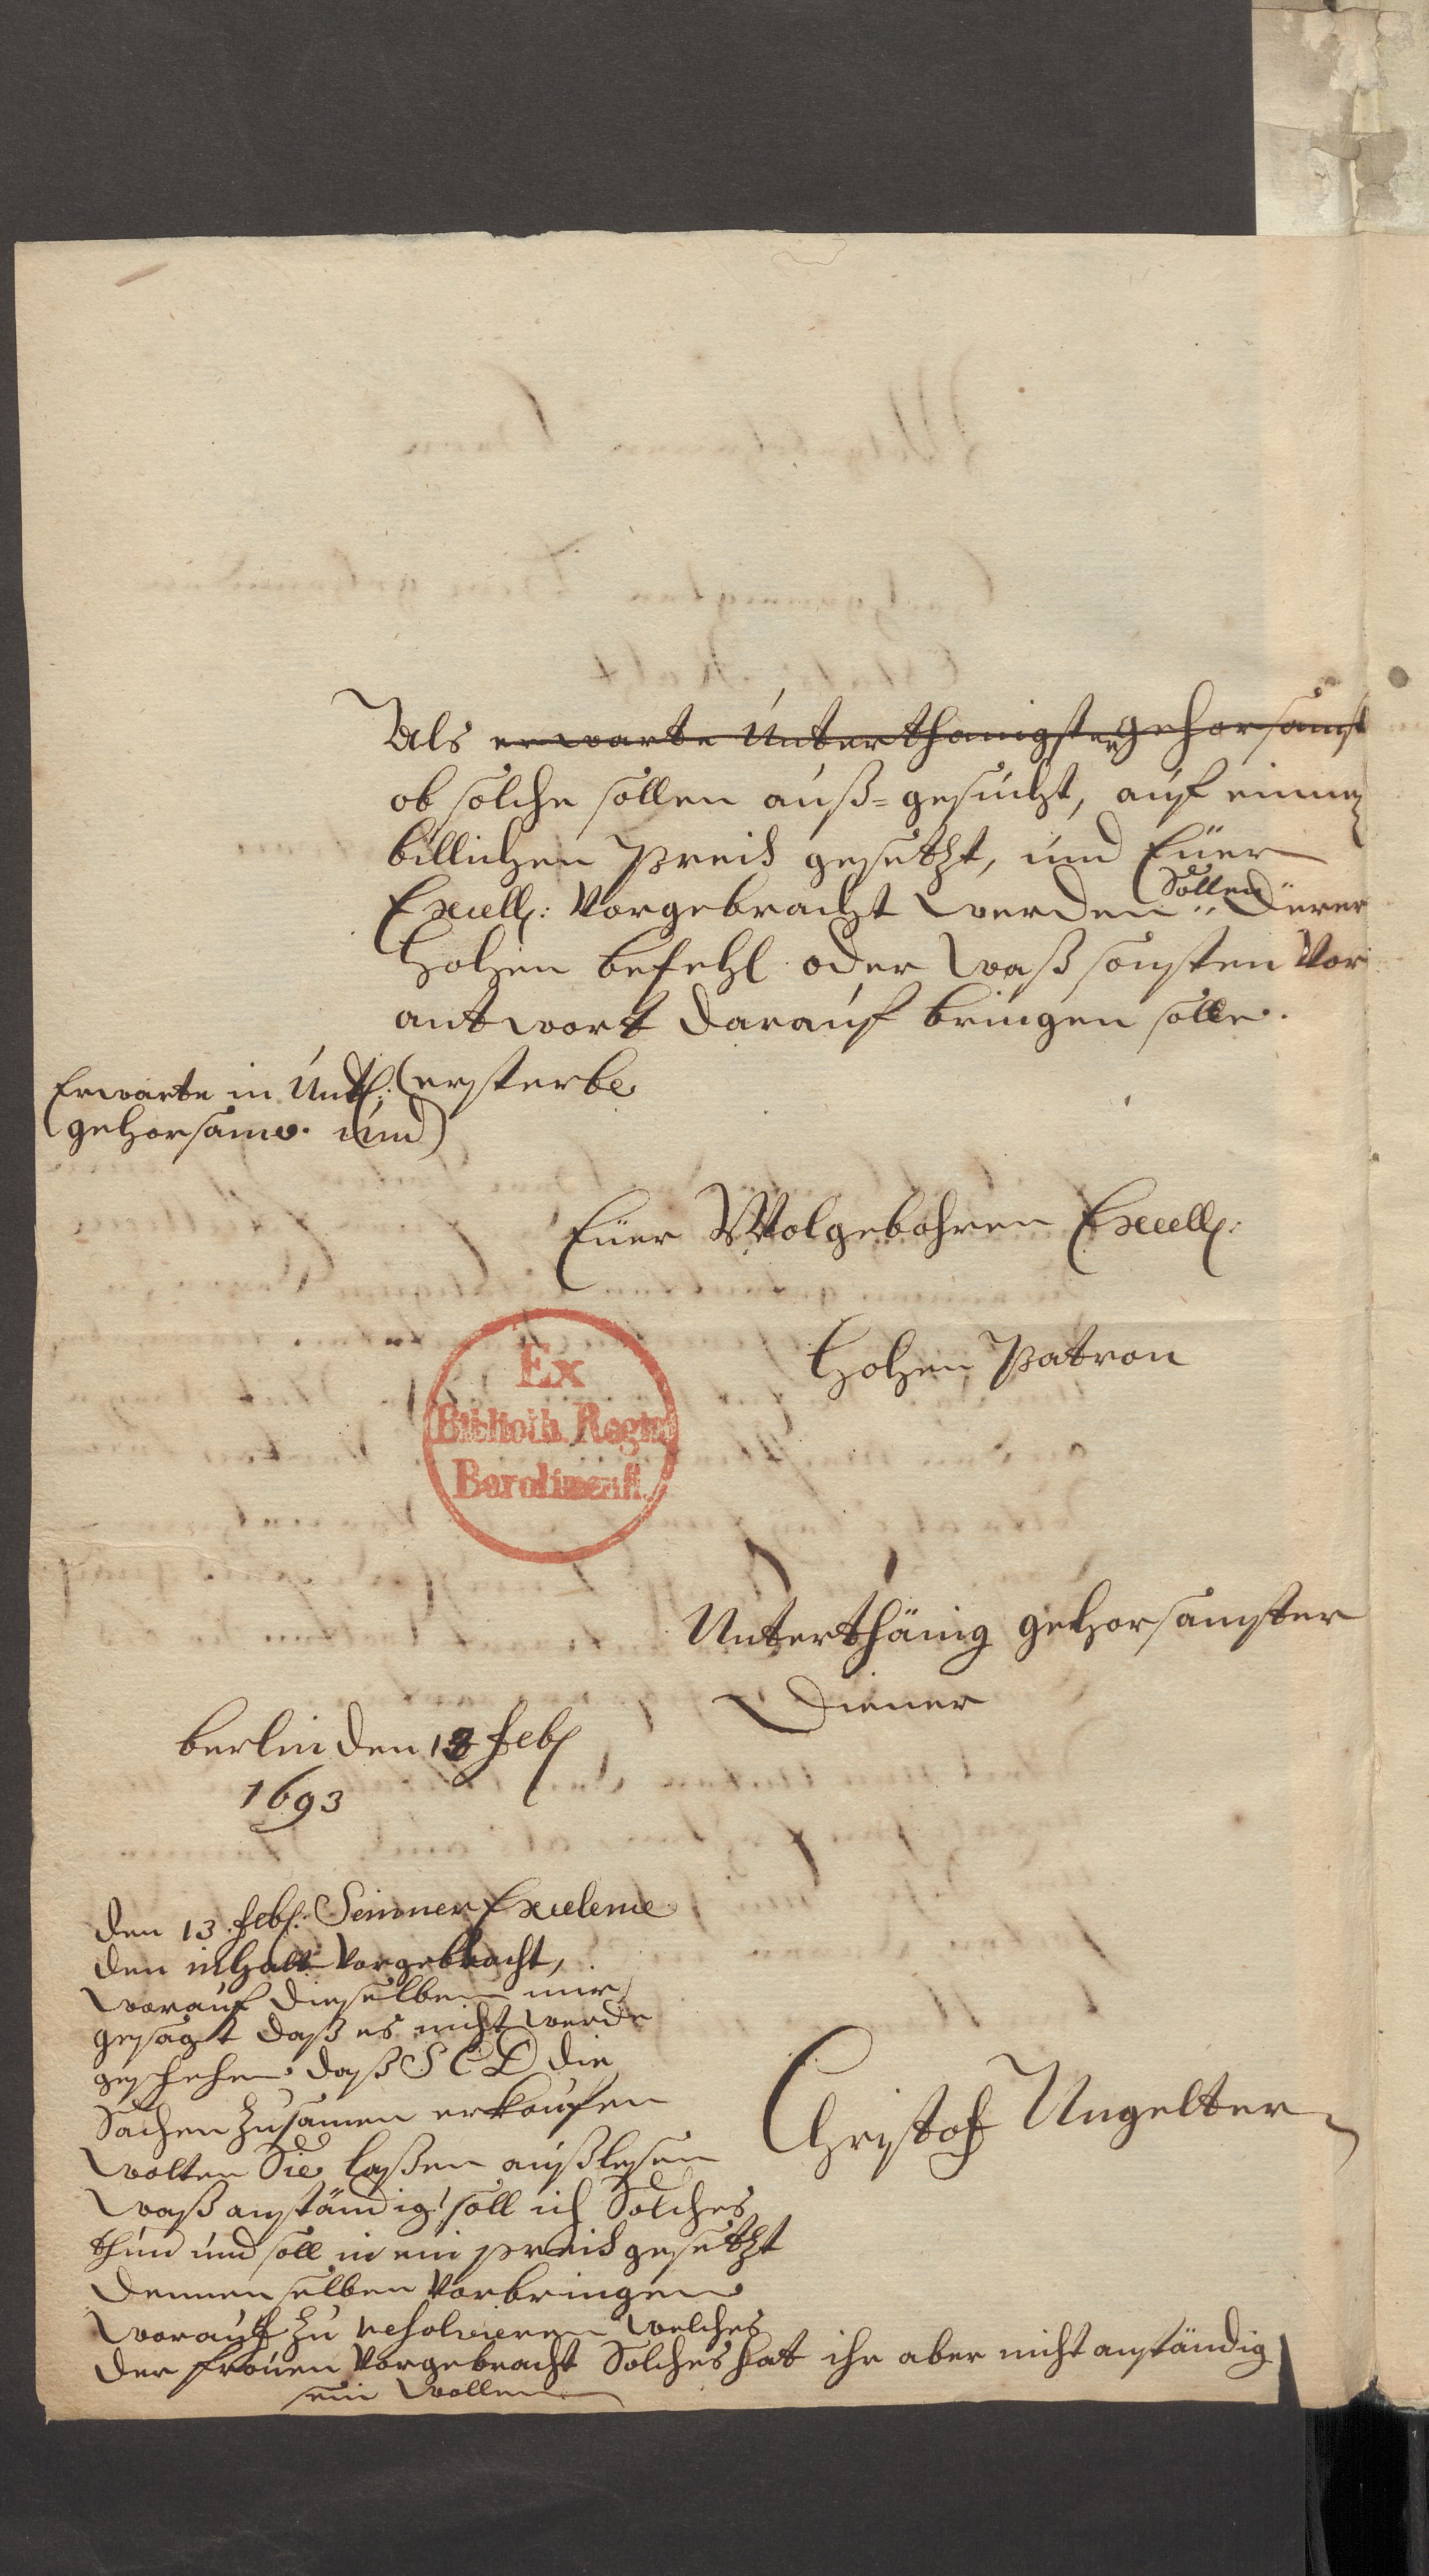 Als erwarte Unterthanigster gehorsamst
ob solche sollen auß-gesucht, auf einen
billichen Preiß gesetzt, und Euer
Excell: Vorgebracht werden sollen Dürer
Hohen befehl oder waß sonsten Vor
antwort darauf bringen solle.
Erwarte in Unt: ersterbe
gehorsame. und
Euer Wolgebohren Excell:
Hohen Patron
Ex
Biblioth. Regia
Berolinensi.
Unterthänig gehorsamster
Diener
berlin den 13 Feb
1693
den 13. Feb: Seinner Excelence
den inhalt Vorgebracht,
worauf dieselben mir
gesagt daß es nicht werde
geschehen daß S C D die
Sachen zusamen erkaufen
wolten Sie laßen außlesen
waß anständig! soll ich Solches
thun und soll in ein preiß gesetzt
dennenselben Vorbringen
worauf zu resolvieren welches
der frauen Vorgebracht Solches hat ihr aber nicht anständig
sein wollen
Christof Ungelter